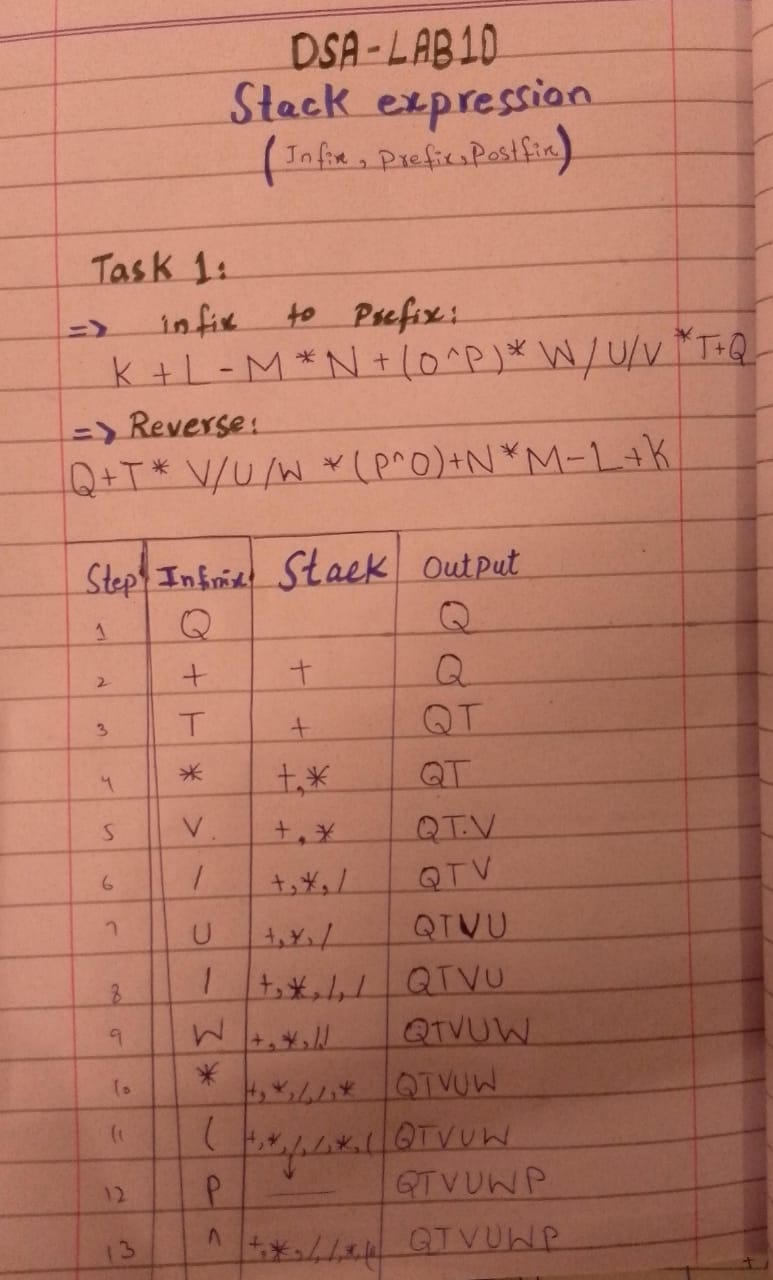 DSA-LAB10
Stack expression
(Infix, Prefix, Postfix)
Task 1:
=> infix to Prefix:
K+L-M*N+(O^P)*W/U/V*T+Q
=> Reverse:
Q+T*V/U/W*(P^O)+N*M-L+K
Step Infnix Stack Output
1 Q Q
2 + + Q
3 T + QT
4 * +,* QT
5 V. +,* QT.V
6 / +,*,/ QTV
7 U +,*,/ QTVU
8 / +,*,/,/ QTVU
9 W +,*,// QTVUW
10 * +,*,/,/,* QTVUW
11 ( +,*,/,/,*,( QTVUW
12 P ↓ — QTVUWP
13 ^ +,*,/,/,*,( QTVUWP